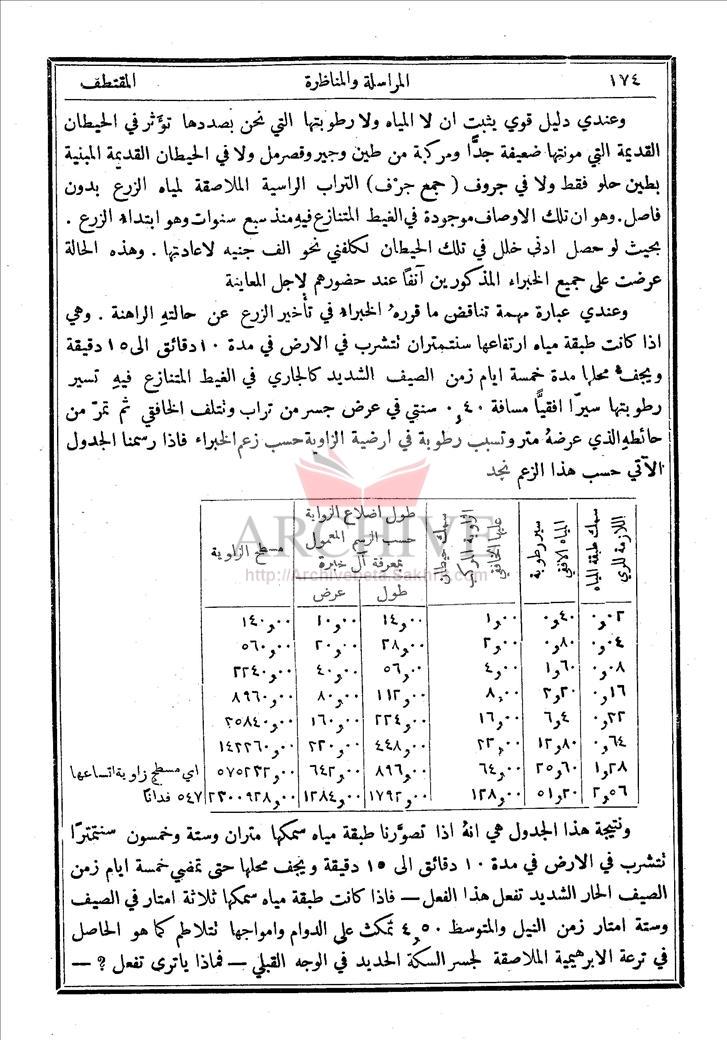 ١٧٤ المراسلة والمناظرة المقتطف
وعندي دليل قوي يثبت ان لا المياه ولا رطوبتها التي نحن بصددها تؤَثر في الحيطان
القديمة التي مونتها ضعيفة جدًّا ومركبة من طين وجير وقصرمل ولا في الحيطان القديمة المبنية
بطين حلو فقط ولا في جروف ( جمع جرف ) التراب الراسية الملاصقة لمياه الزرع بدون
فاصل . وهو ان تلك الاوصاف موجودة في الغيط المتنازع فيه منذ سبع سنوات وهو ابتداء الزرع .
بحيث لو حصل ادنى خلل في تلك الحيطان لكلفني نحو الف جنيه لاعادتها . وهذه الحالة
عرضت على جميع الخبراء المذكورين آنفًا عند حضورهم لاجل المعاينة
وعندي عبارة مهمة تناقض ما قررهُ الخبراء في تأخير الزرع عن حالتهِ الراهنة . وهي
اذا كانت طبقة مياه ارتفاعها سنتمتران لتشرب في الارض في مدة ١٠ دقائق الى ١٥ دقيقة
ويجف محلها مدة خمسة ايام زمن الصيف الشديد كالجاري في الغيط المتنازع فيهِ تسير
رطوبتها سيرًا افقيًّا مسافة ٠٫٤٠ سنتي في عرض جسر من تراب ونتلف الخافقي ثم تمرّ من
حائطهِ الذي عرضهُ متر وتسبب رطوبة في ارضية الزاوية حسب زعم الخبراء فاذا رسمنا الجدول
الآتي حسب هذا الزعم نجد
سمك طبقة المياه اللازمة للري
سير رطوبة المياه الافقي
سمك حيطان الزاوية المركب عليها الخافقي
طول اضلاع الزوابة حسب الرسم المعمول بمعرفة آل خبرة
طول عرض
مسطح الزاوية
٠٫٠٢ ٠٫٤٠ ١٫٠٠ ١٤٫٠٠ ١٠٫٠٠ ١٤٠٫٠٠
٠٫٠٤ ٠٫٨٠ ٢٫٠٠ ٢٨٫٠٠ ٢٠٫٠٠ ٥٦٠٫٠٠
٠٫٠٨ ١٫٦٠ ٤٫٠٠ ٥٦٫٠٠ ٤٠٫٠٠ ٢٢٤٠٫٠٠
٠٫١٦ ٢٫٢٠ ٨٫٠٠ ١١٢٫٠٠ ٨٠٫٠٠ ٨٩٦٠٫٠٠
٠٫٢٢ ٦٫٤ ١٦٫٠٠ ٢٢٤٫٠٠ ١٦٠٫٠٠ ٢٥٨٤٠٫٠٠
٠٫٦٤ ١٢٫٨٠ ٢٢٫٠٠ ٤٤٨٫٠٠ ٢٢٠٫٠٠ ١٤٢٢٦٠٫٠٠
١٫٢٨ ٢٥٫٦٠ ٦٤٫٠٠ ٨٩٦٫٠٠ ٦٤٢٫٠٠ ٥٧٥٢٣٢٫٠٠ اي مسطح زاوية اتساعها
٢٫٥٦ ٥١٫٢٠ ١٢٨٫٠٠ ١٧٩٢٫٠٠ ١٢٨٤٫٠٠ ٢٣٠٠٩٢٨٫٠٠ ٥٤٧ فدانًا
ونتيجة هذا الجدول هي انهُ اذا تصوَّرنا طبقة مياه سمكها متران وستة وخمسون سنتمترًا
لتشرب في الارض في مدة ١٠ دقائق الى ١٥ دقيقة ويجف محلها حتى تمضي خمسة ايام زمن
الصيف الحار الشديد تفعل هذا الفعل — فاذا كانت طبقة مياه سمكها ثلاثة امتار في الصيف
وستة امتار زمن النيل والمتوسط ٤٫٥٠ تمكث على الدوام وامواجها نتلاطم كما هو الحاصل
في ترعة الابرهيمية الملاصقة لجسر السكة الحديد في الوجه القبلي — فماذا ياترى تفعل ؟ —
ARCHIVE
http://Archivebeta.Sakhrit.com